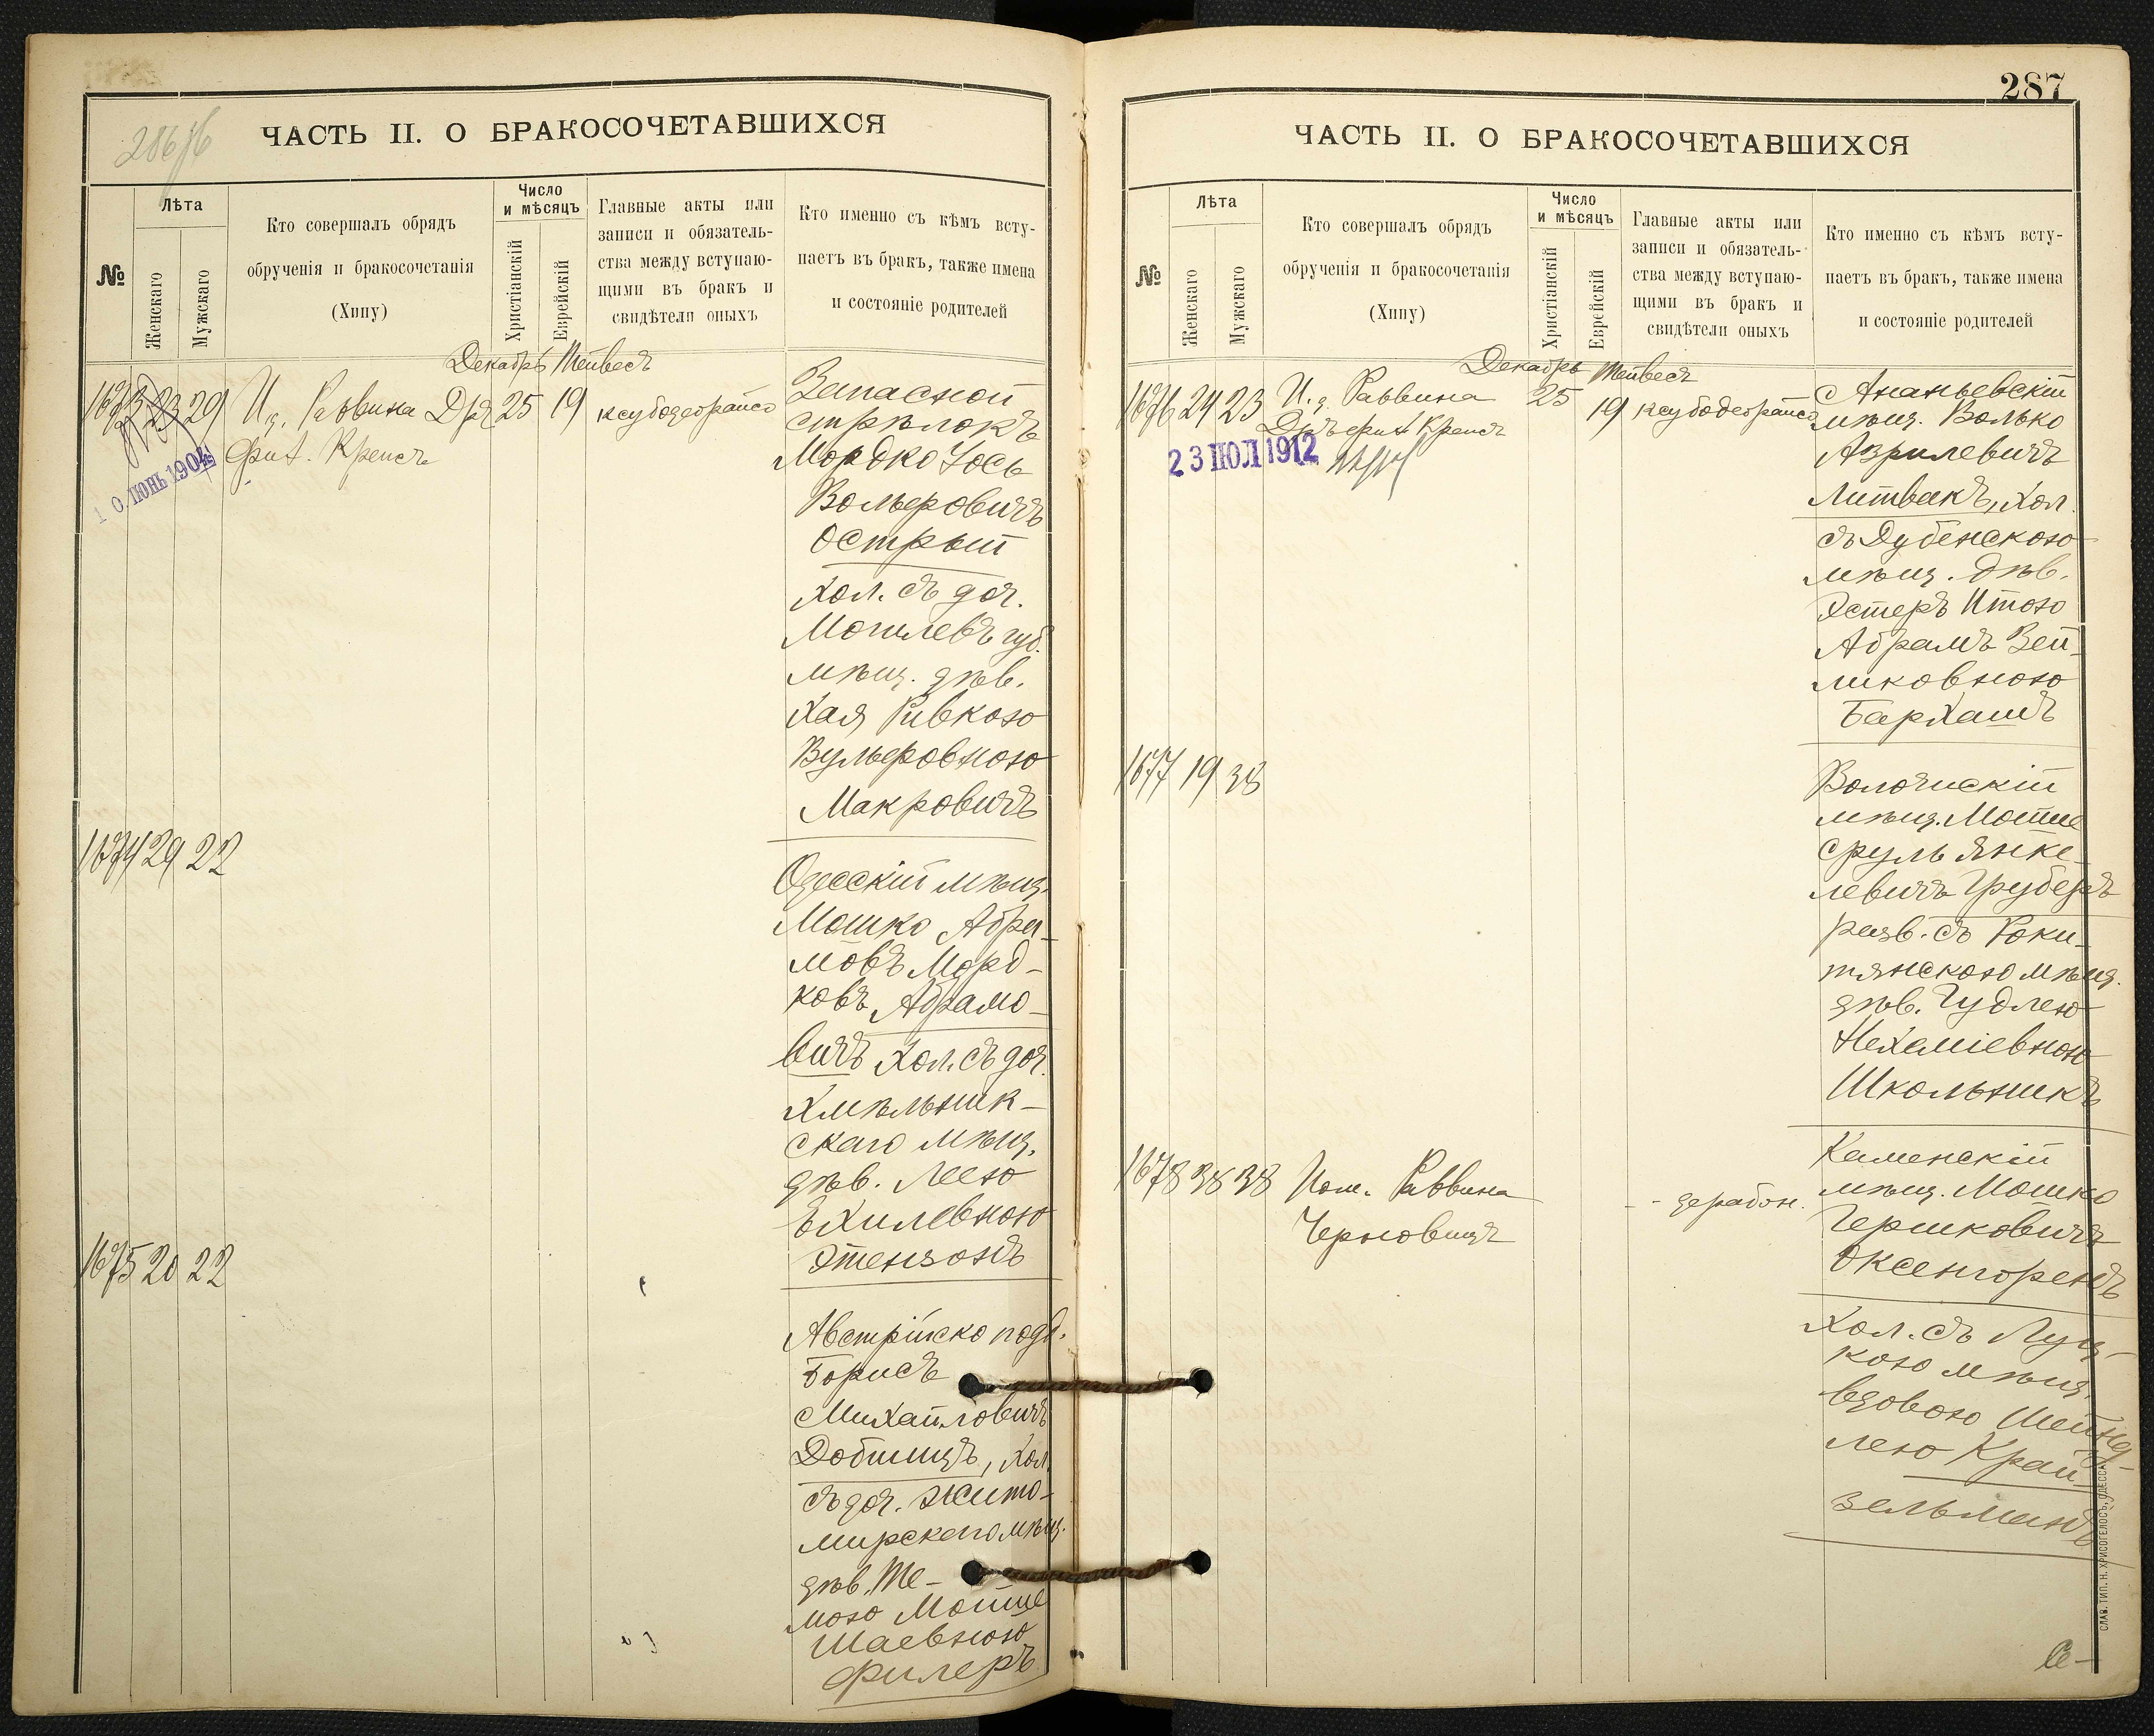 ЧАСТЬ II. О БРАКОСОЧЕТАВШИХСЯ
№
Лѣта
Женскаго
Мужскаго
Кто совершалъ обрядъ
обрученія и бракосочетанія
(Хипу)
Число
и мѣсяцъ
Христіанскій
Еврейскій
Главные акты или
записи и обязатель-
ства между вступаю-
щими въ бракъ и
свидѣтели оныхъ
Кто именно съ кѣмъ всту-
паетъ въ бракъ, также имена
и состояніе родителей
Декабрь Тейвесъ
29 И. д. Раввина Дръ 25 19
фил. Крепсъ
10 ІЮНЬ 1904
Запасной
стрѣлокъ
Мордко Іось
Вольфовичъ
Острый
Хол. съ доч.
Могилевъ губ.
мѣщ. дѣв.
Хая Ривкою
Вульфовною
Макровичъ
1674 29 22
Одесскій мѣщ.
Мошко Абра-
мовъ Морд-
ковъ Абрамо-
вичъ Хол. съ доч.
Хмѣльник-
скаго мѣщ.
дѣв. Леею
Ехилевною
Этензонъ
1675 20 22
Австрійско подд.
Борисъ
Михайловичъ
Добшицъ, Хол.
съ доч. Жито-
мирскаго мѣщ.
дѣв. Те-
мою Мотше
Шаевною
Филеръ
287
ЧАСТЬ II. О БРАКОСОЧЕТАВШИХСЯ
№
Лѣта
Женскаго
Мужскаго
Кто совершалъ обрядъ
обрученія и бракосочетанія
(Хипу)
Число
и мѣсяцъ
Христіанскій
Еврейскій
Главные акты или
записи и обязатель-
ства между вступаю-
щими въ бракъ и
свидѣтели оныхъ
Кто именно съ кѣмъ всту-
паетъ въ бракъ, также имена
и состояніе родителей
Декабрь Тейвесъ
1676 24 23 И. д. Раввина 25 19
Дръ фил Крепсъ
23 ІЮЛ 1912
Ананьевскій
мѣщ. Волько
Азрилевичъ
Литвакъ, Хол.
съ Дубенскою
мѣщ. дѣв.
Эстеръ Итою
Абрамъ Зей-
ликовною
Бархашъ
1677 19 38
Волочискій
мѣщ. Мотше
Сруль Янке-
левичъ Груберъ
разв. съ Роки-
тянскою мѣщ.
дѣв. Гудлею
Нехаміевною
Школьникъ
1678 38 38 Пом. Раввина
Черновицъ
Каменскій
мѣщ. Мошко
Гершковичъ
Оксенгоренъ
Хол. съ Луц-
кою мѣщ.
вдовою Шейнд-
лею Край-
зельманъ
СЛАВ. ТИП. Н. ХРИСОГЕЛОСЪ, ОДЕССА